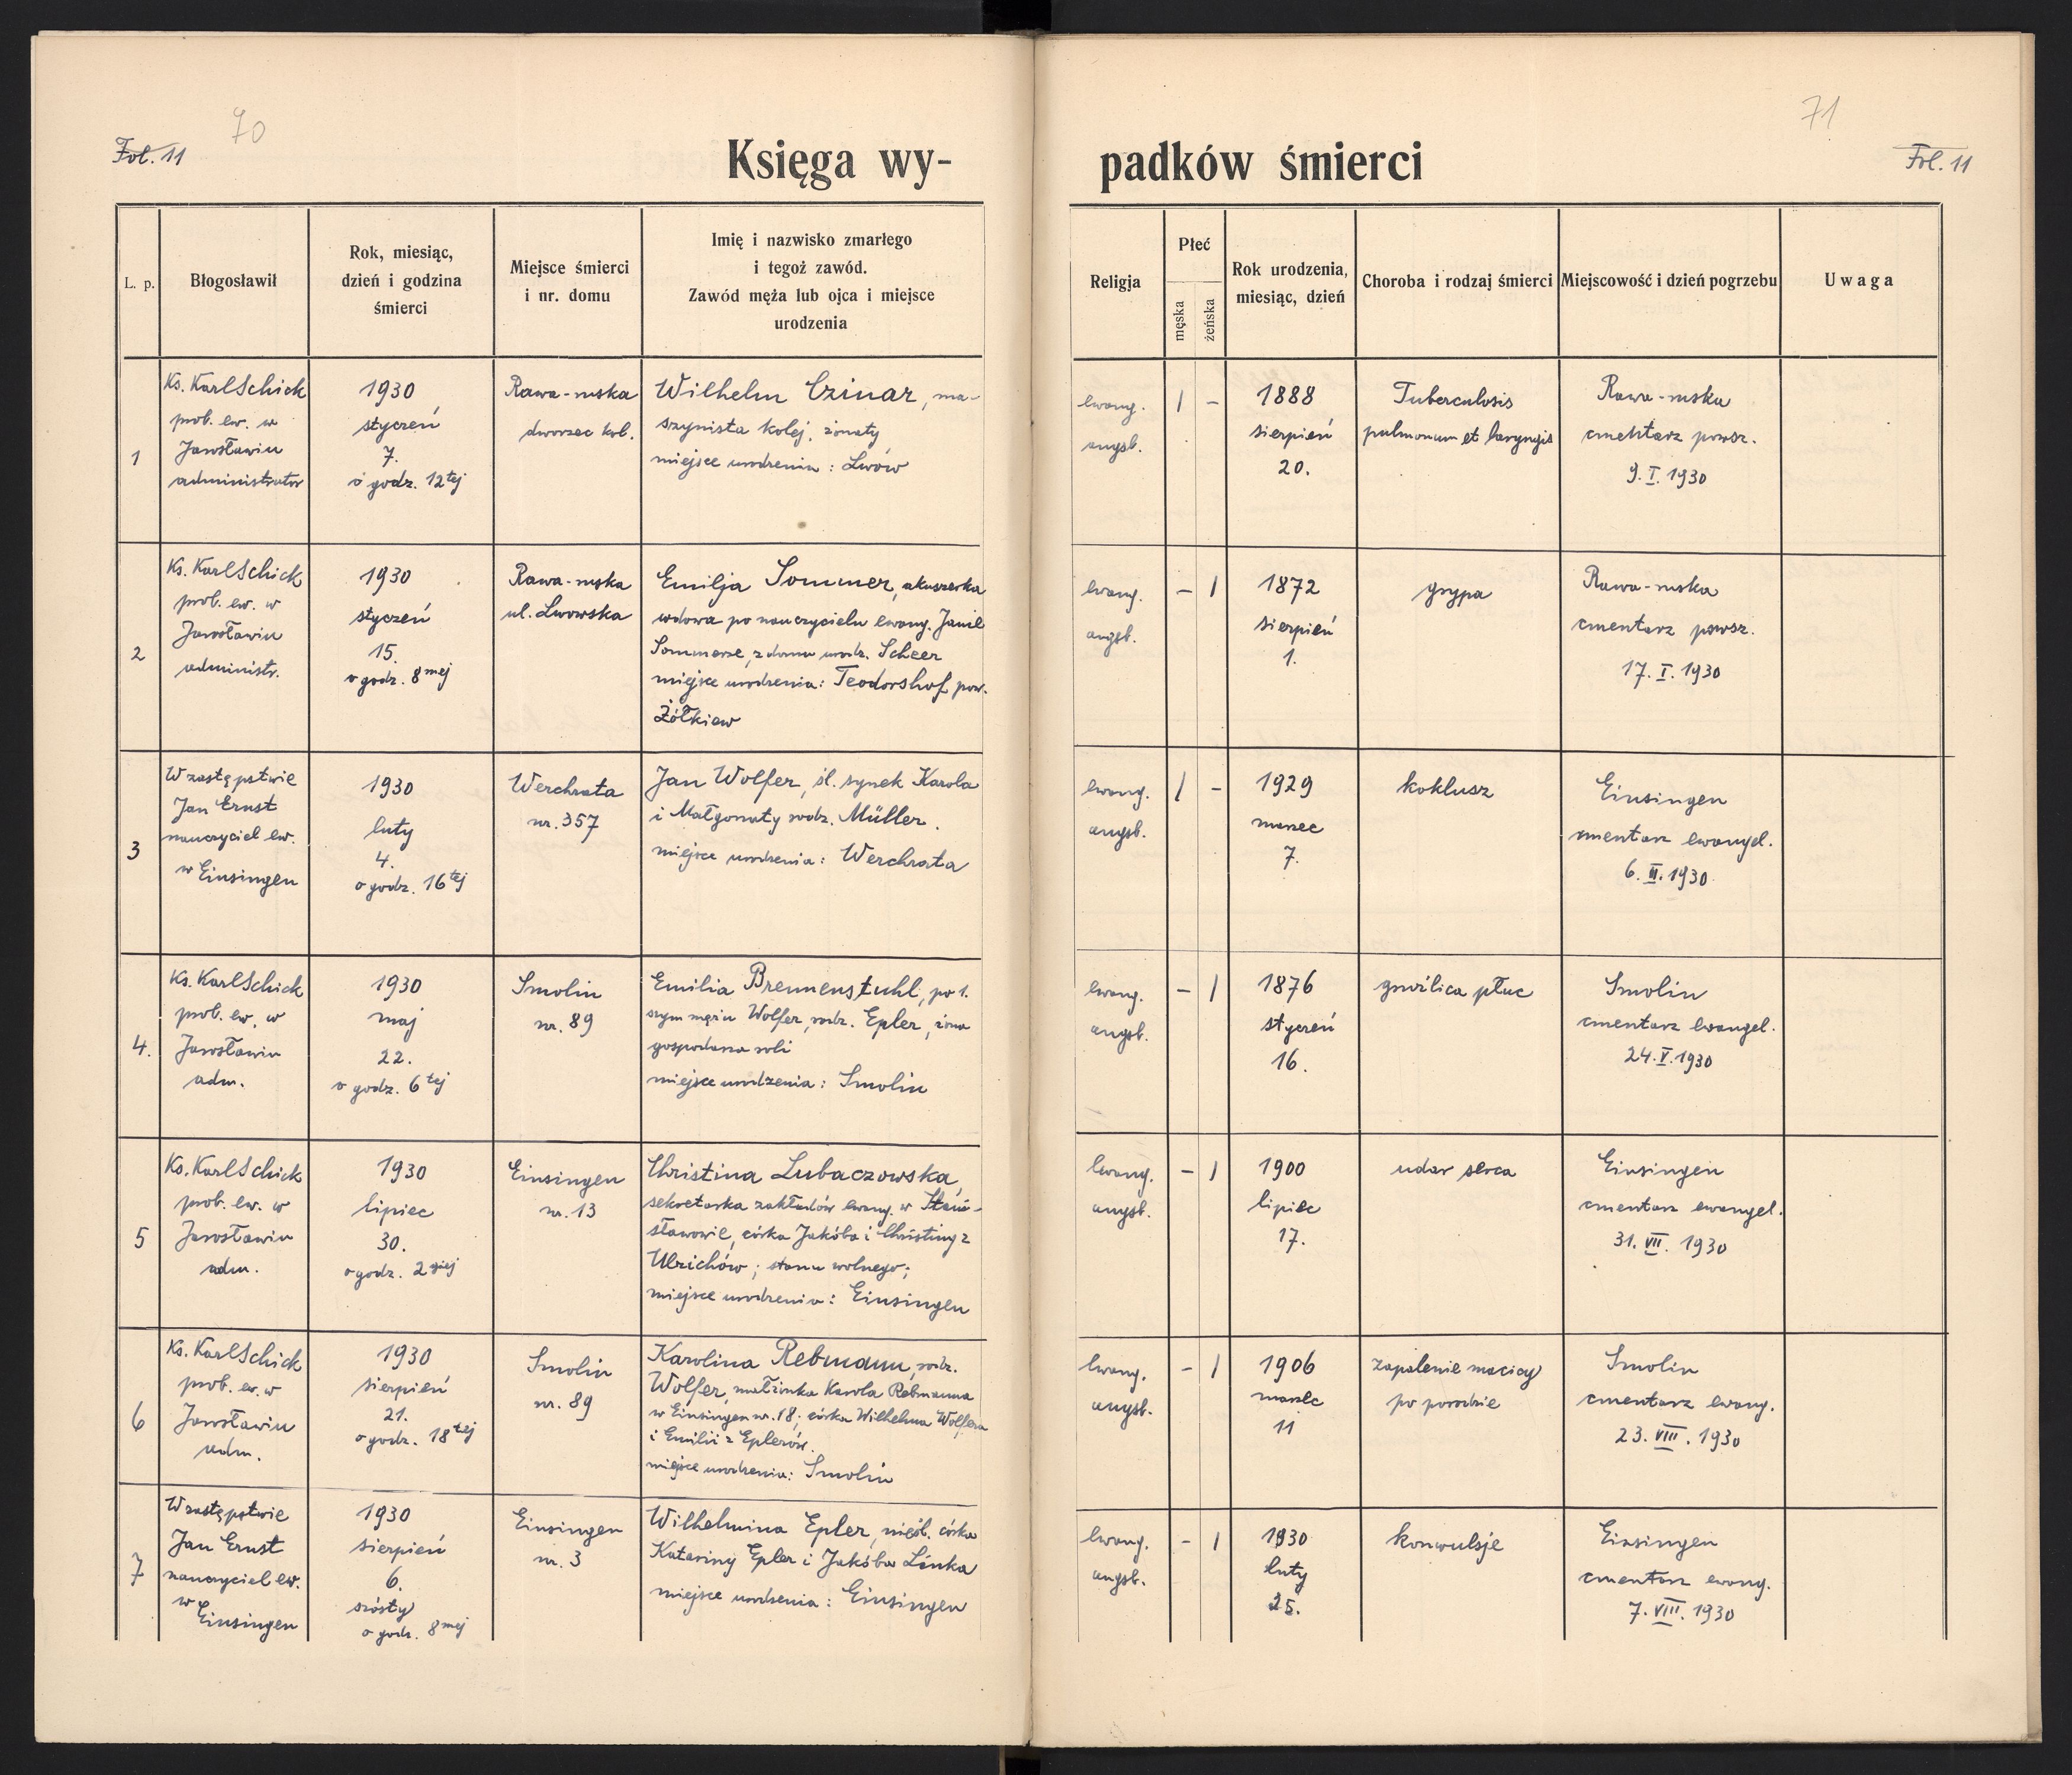 70
Fol. 11
Księga wy-
L. p.
Błogosławił
Rok, miesiąc,
dzień i godzina
śmierci
Miejsce śmierci
i nr. domu
Imię i nazwisko zmarłego
i tegoż zawód.
Zawód męża lub ojca i miejsce
urodzenia
1
Ks. Karl Schick
prob. ew. w
Jarosławiu
administrator
1930
styczeń
7.
o godz. 12tej
Rawa-ruska
dworzec kol.
Wilhelm Czinar, ma-
szynista kolej. żonaty
miejsce urodzenia: Lwów
2
Ks. Karl Schick
prob. ew. w
Jarosławiu
administr.
1930
styczeń
15.
o godz. 8mej
Rawa-ruska
ul. Lwowska
Emilja Sommer, akuszerka
wdowa po nauczycielu ewang. Janie
Sommerze, z domu urodz. Scheer
miejsce urodzenia: Teodorshof pow.
Żółkiew
3
W zastępstwie
Jan Ernst
nauczyciel ew.
w Einsingen
1930
luty
4.
o godz. 16tej
Werchrata
nr. 357
Jan Wolfer, śl. synek Karola
i Małgorzaty rodz. Müller.
miejsce urodzenia: Werchrata
4.
Ks. Karl Schick
prob. ew. w
Jarosławiu
adm.
1930
maj
22.
o godz. 6tej
Smolin
nr. 89
Emilia Bremenstuhl, po 1.
szym mężu Wolfer, rodz. Epler, żona
gospodarza roli
miejsce urodzenia: Smolin
5
Ks. Karl Schick
prob. ew. w
Jarosławiu
adm.
1930
lipiec
30.
o godz. 2giej
Einsingen
nr. 13
Christina Lubaczowska,
sekretarka zakładów ewang. w Stani-
sławowie, córka Jakóba i Christiny z
Ulrichów; stanu wolnego;
miejsce urodzenia: Einsingen
6
Ks. Karl Schick
prob. ew. w
Jarosławiu
adm.
1930
sierpień
21.
o godz. 18tej
Smolin
nr. 89
Karolina Rebmann, rodz.
Wolfer, małżonka Karola Rebmanna
w Einsingen nr. 18; córka Wilhelma Wolfera
i Emilii z Eplerów.
miejsce urodzenia: Smolin
7
W zastępstwie
Jan Ernst
nauczyciel ew.
w
Einsingen
1930
sierpień
6.
szósty
o godz. 8mej
Einsingen
nr. 3
Wilhelmina Epler, nieśl. córka
Katariny Epler i Jakóba Linka
miejsce urodzenia: Einsingen
71
Fol. 11
padków śmierci
Religja
Płeć
męska
żeńska
Rok urodzenia,
miesiąc, dzień
Choroba i rodzaj śmierci
Miejscowość i dzień pogrzebu
Uwaga
ewang.
augsb.
1 -
1888
sierpień
20.
Tuberculosis
pulmonum et laryngis
Rawa-ruska
cmentarz powsz.
9. I. 1930
ewang.
augsb.
- 1
1872
sierpień
1.
grypa
Rawa-ruska
cmentarz powsz.
17. I. 1930
ewang.
augsb.
1 -
1929
marzec
7.
koklusz
Einsingen
cmentarz ewangel.
6. II. 1930
ewang.
augsb.
- 1
1876
styczeń
16.
gruźlica płuc
Smolin
cmentarz ewangel.
24. V. 1930
ewang.
augsb.
- 1
1900
lipiec
17.
udar serca
Einsingen
cmentarz ewangel.
31. VII. 1930
ewang.
augsb.
- 1
1906
marzec
11
zapalenie macicy
po porodzie
Smolin
cmentarz ewang.
23. VIII. 1930
ewang.
augsb.
- 1
1930
luty
25.
konwulsje
Einsingen
cmentarz ewang.
7. VIII. 1930